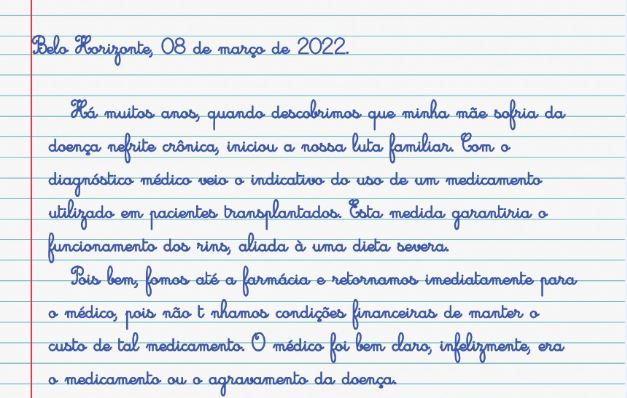 Belo Horizonte, 08 de março de 2022.
Há muitos anos, quando descobrimos que minha mãe sofria da
doença nefrite crônica, iniciou a nossa luta familiar. Com o
diagnóstico médico veio o indicativo do uso de um medicamento
utilizado em pacientes transplantados. Esta medida garantiria o
funcionamento dos rins, aliada à uma dieta severa.
Pois bem, fomos até a farmácia e retornamos imediatamente para
o médico, pois não t nhamos condições financeiras de manter o
custo de tal medicamento. O médico foi bem claro, infelizmente, era
o medicamento ou o agravamento da doença.